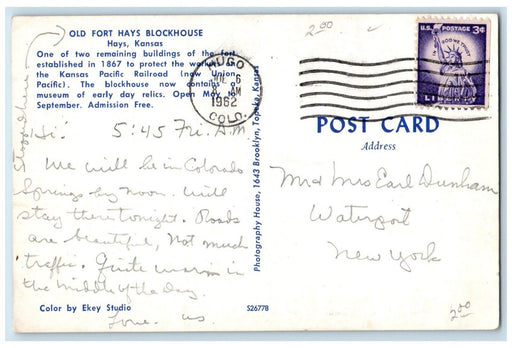 OLD FORT HAYS BLOCKHOUSE
Hays, Kansas
One of two remaining buildings of the fort
established in 1867 to protect the workers on
the Kansas Pacific Railroad (now Union
Pacific). The blockhouse now contains a
museum of early day relics. Open May to
September. Admission Free.
Stopped here
Hi: 5:45 Fri. A.M
We will be in Colorado
Springs by noon. Will
stay there tonight. Roads
are beautiful, Not much
traffic. Quite warm in
the middle of the day.
Love. us
Color by Ekey Studio
S26778
Photography House, 1643 Brooklyn, Topeka, Kansas
HUGO
JUL 6
AM
1962
COLO.
2.00
U.S. POSTAGE 3¢
IN GOD WE TRUST
LIBERTY
POST CARD
Address
Mr & Mrs Earl Dunham
Waterport
New York
2.00